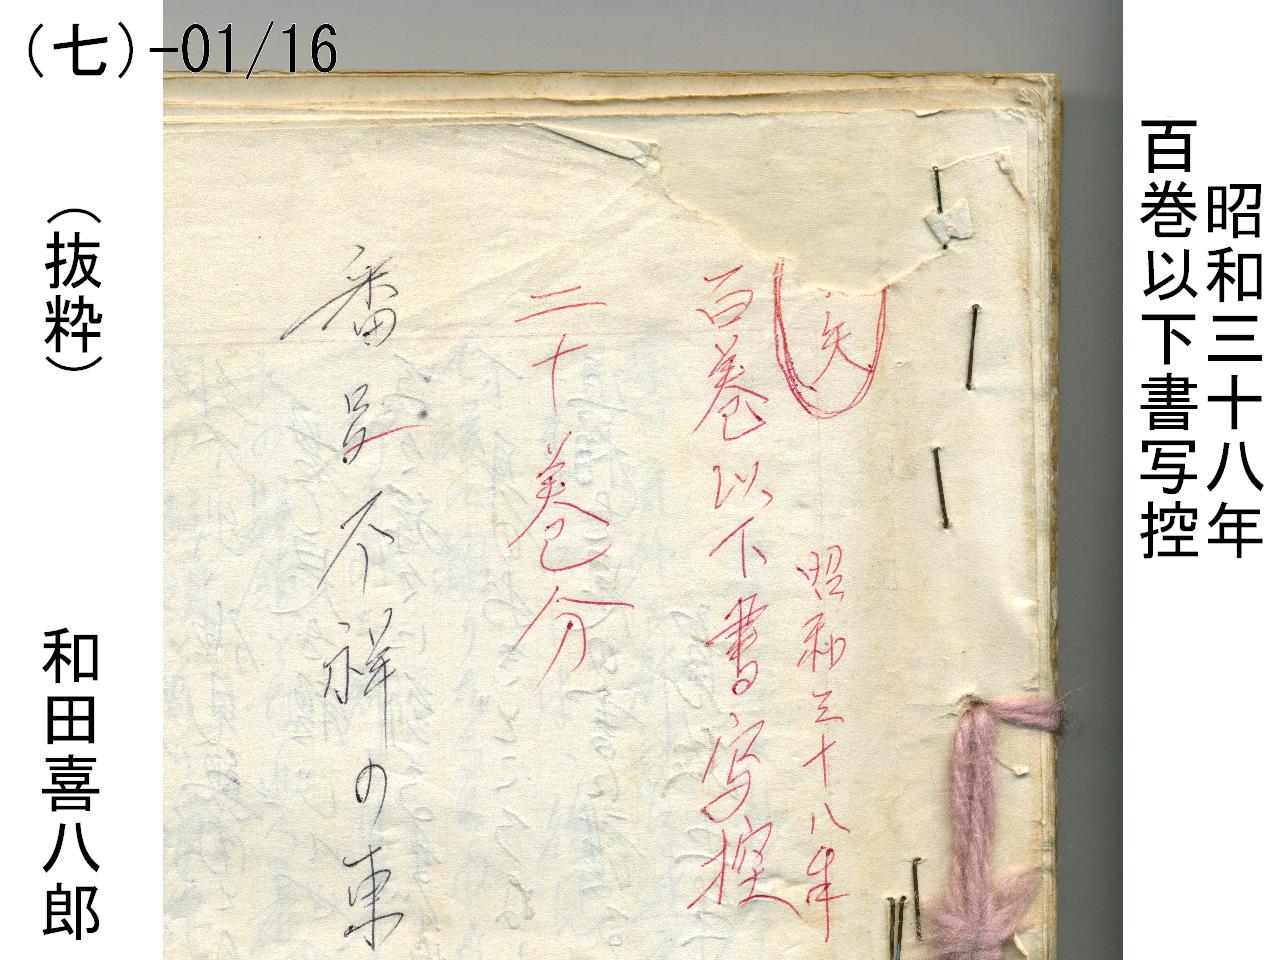 (七)-01/16
昭和三十八年
百巻以下書写控
(抜粋)
和田喜八郎
矢
昭和三十八年
百巻以下書写控
二十巻分
番号不祥の東